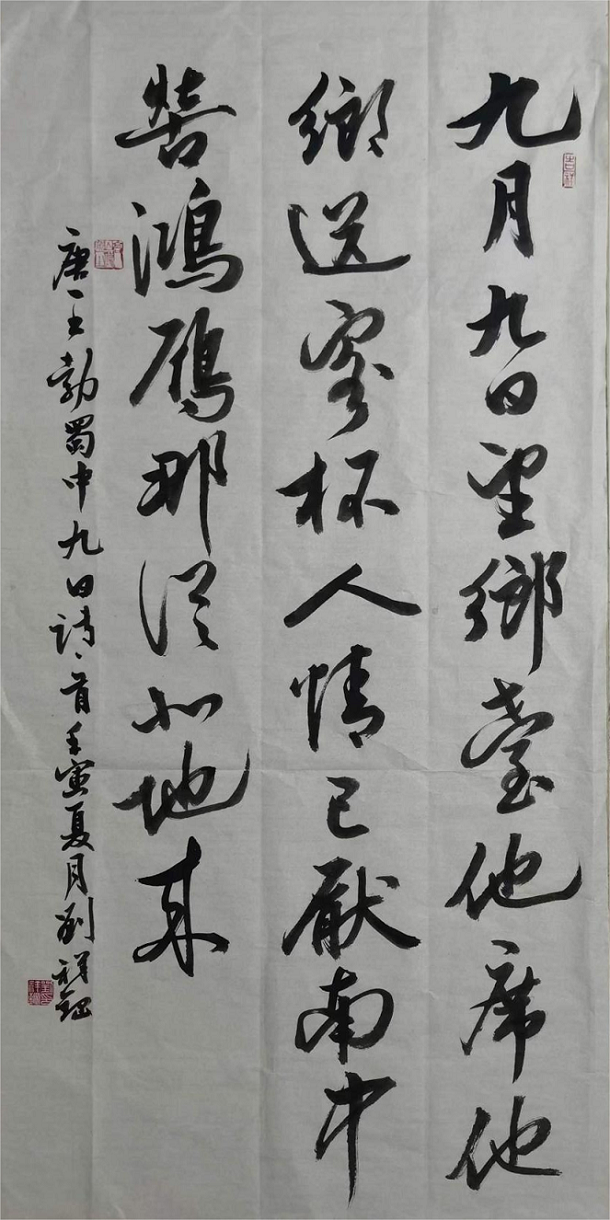 九月九日望鄉臺他席他
鄉送客杯人情已厭南中
苦鴻鴈那從北地來
唐王勃蜀中九日詩一首壬寅夏月劉祥